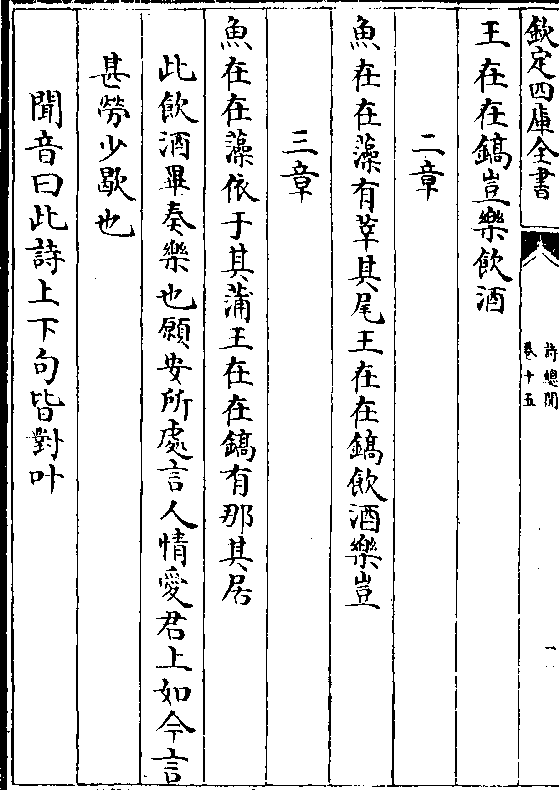 欽定四庫全書
詩總聞
卷十五
一
王在在鎬豈樂飲酒
二章
魚在在藻有莘其尾王在在鎬飲酒樂豈
三章
魚在在藻依于其蒲王在在鎬有那其居
此飲酒畢奏樂也願安所處言人情愛君上如今言
甚勞少歇也
聞音曰此詩上下句皆對叶